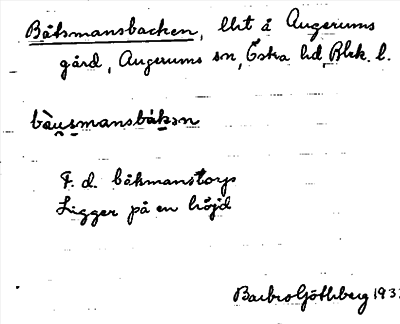 Båtsmansbacken, lht å Augerums
gård, Augerums sn, Östra hd, Blek. l.
bàu̯smansbák̯ən
F. d. båtsmanstorp
Ligger på en höjd
Barbro Göthberg 193